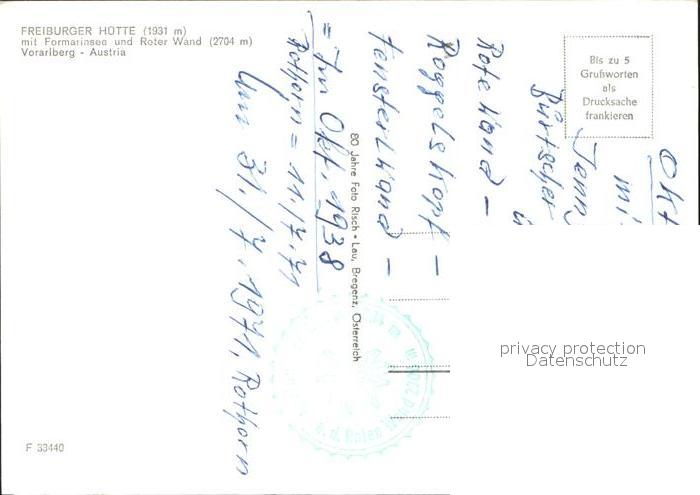 FREIBURGER HÜTTE (1931 m)
mit Formarinsee und Roter Wand (2704 m)
Vorarlberg - Austria
Bis zu 5
Grußworten
als
Drucksache
frankieren
Okt
mi
Jenny
Bürtscher
Rote Wand –
Roggelskopf –
Fensterlwand –
= Im Okt. 1938
Rothorn = 11./7.71
Am 31./7.1971, Rothorn
80 Jahre Foto Risch-Lau, Bregenz, Österreich
d. Roten Wand 2702 m
privacy protection
Datenschutz
F 33440